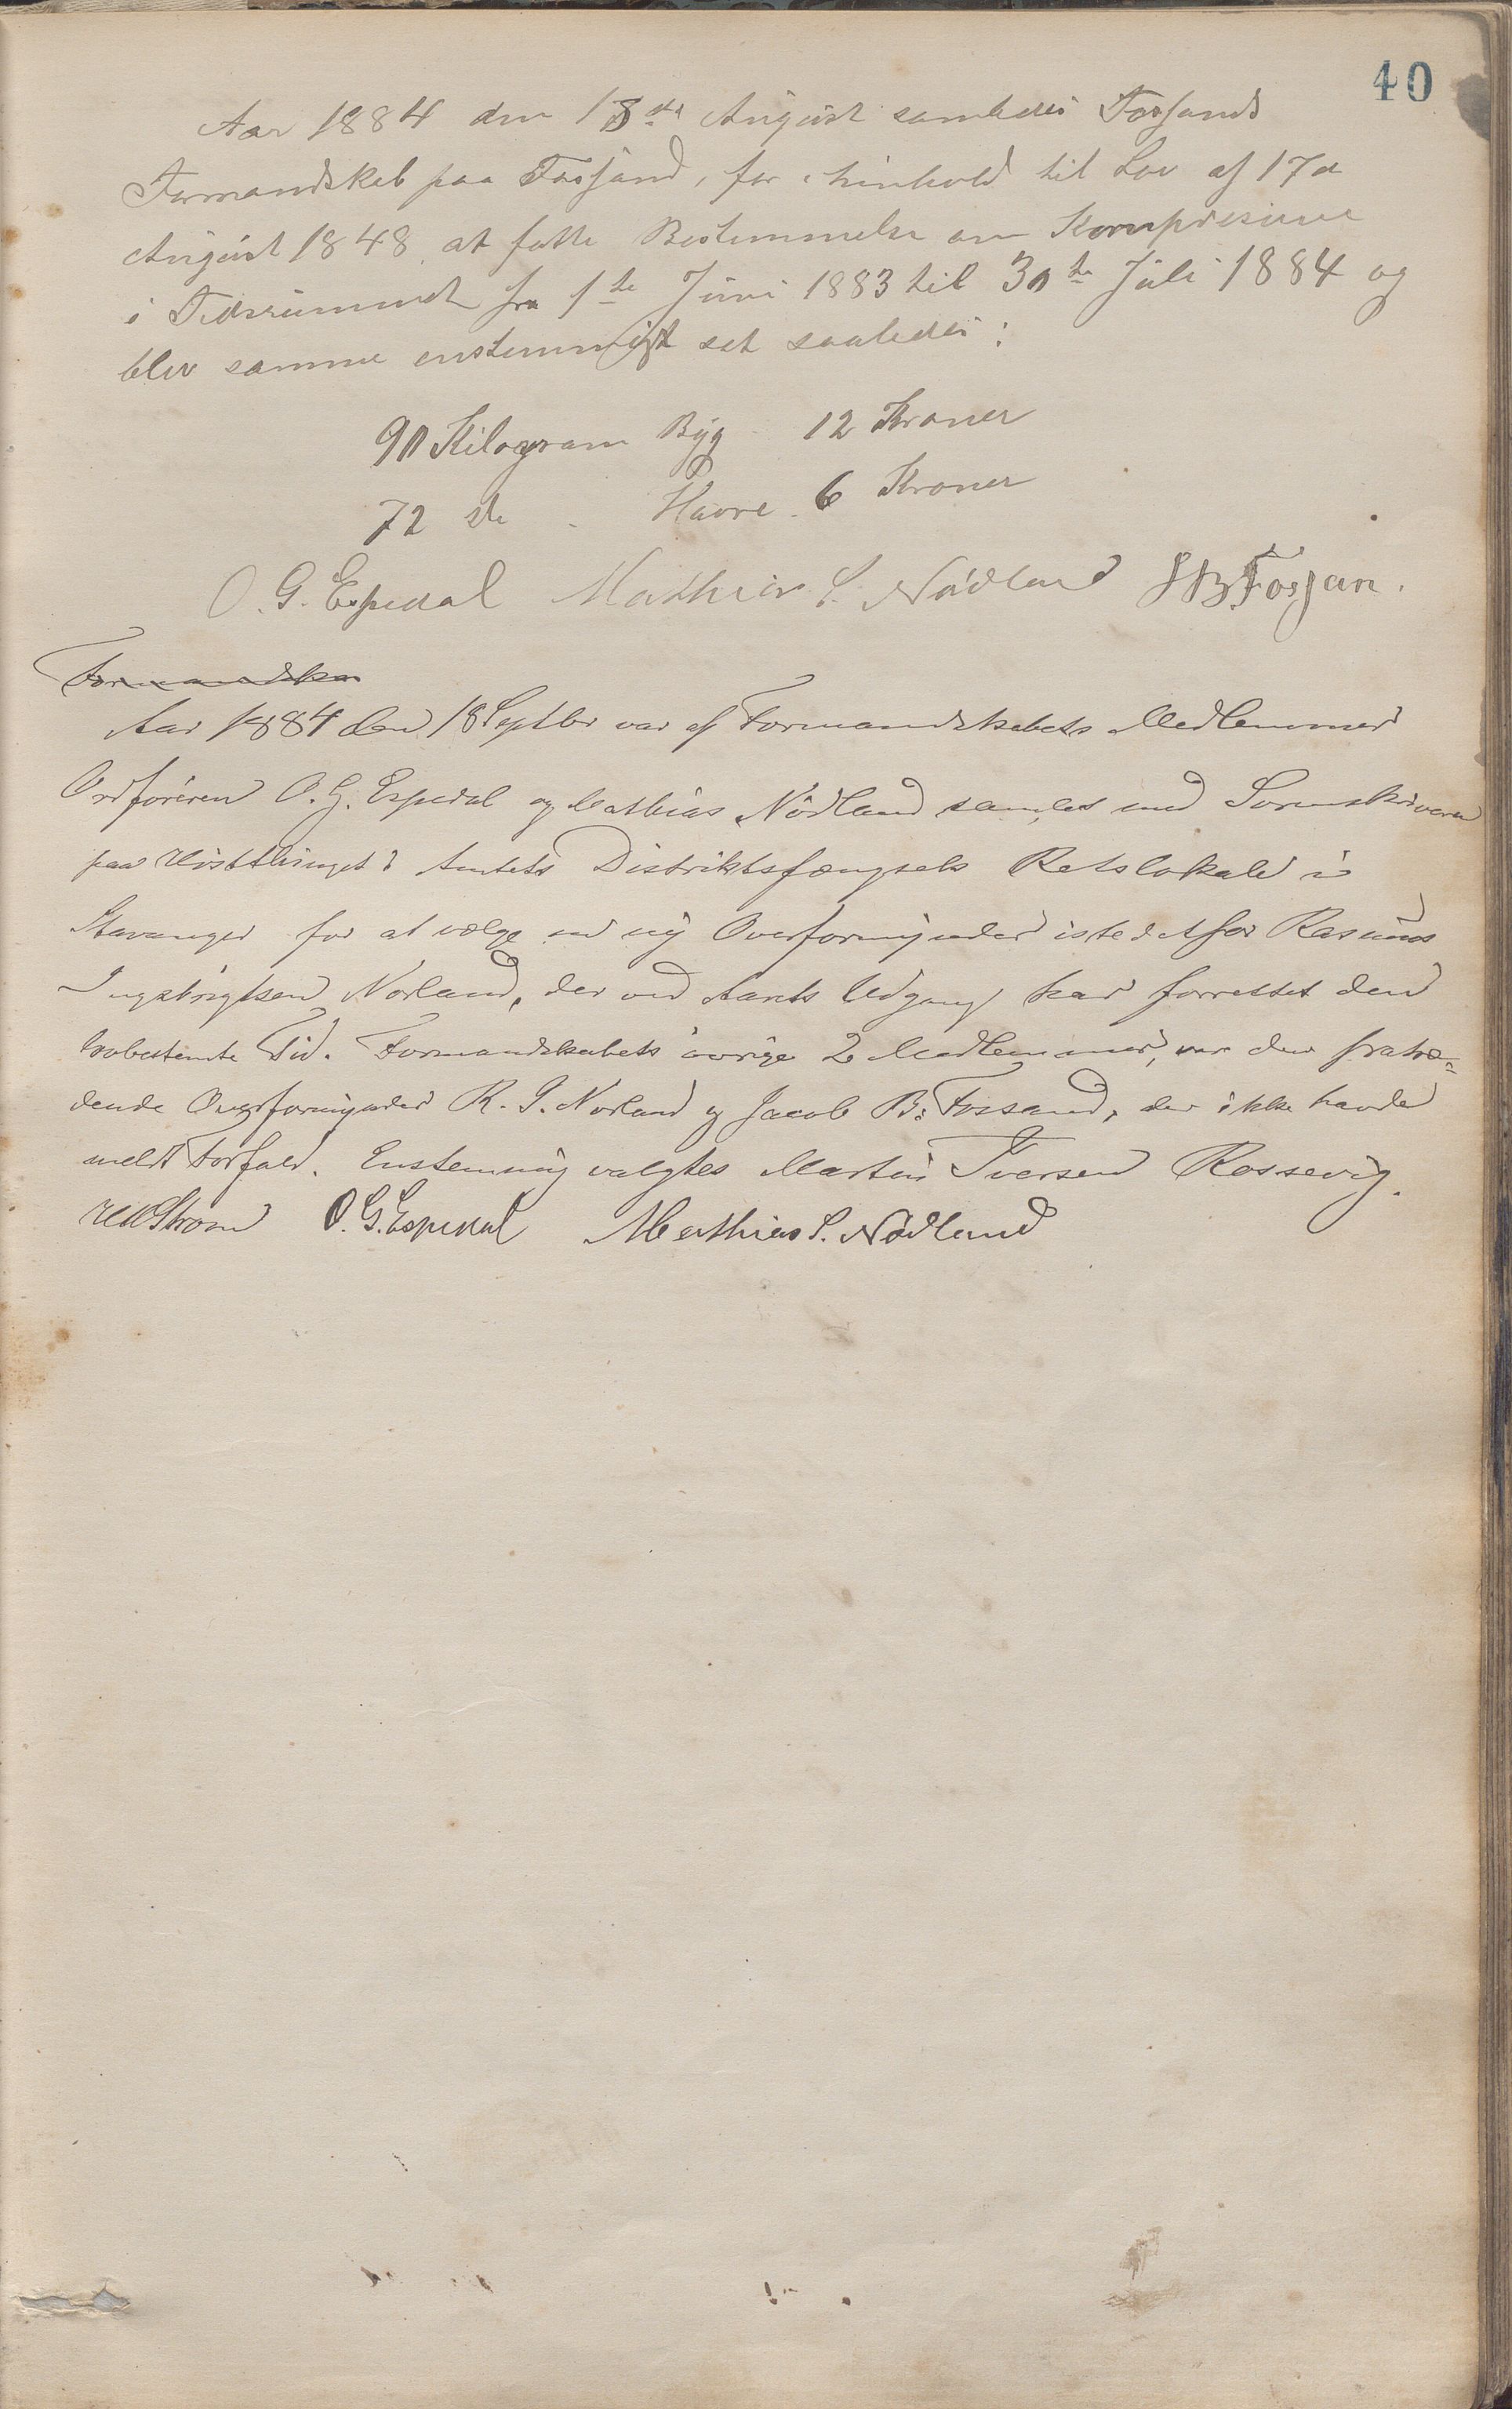 40
Aar 1884 den 18de August samledes Fossands
Formandskab paa Fossand, for i hinhold til Lov af 17de
August 1848 at fatte Bestemmelse om Kornpriserne
i Tidsrummet fra 1te Juni 1883 til 30te Juli 1884 og
blev samme enstemmigt sat saaledes:
90 Kilogram Byg 12 Kroner
72 do Havre 6 Kroner
O. G. Espedal Mathias S. Nödland JBFossan.
Formandska
Aar 1884 den 18 Septbr var af Formandskabets Medlemmer
Ordföreren O. G. Espedal og Mathias Nödland samlet med Sorenskriveren
paa Høstthinget i Amtets Distriktsfængsels Retslokale i
Stavanger for at vælge en ny Overformynder istedetfor Rasmus
Ingebrigtsen Norland, der ved Aarets Udgang har forrettet den
lovbestemte Tid. Formandskabets øvrige 2 Medlemmer, var den fratræ=
dende Overformynder R. I. Norland og Jacob B. Fossand, der ikke havde
meldt Forfald. Enstemmig valgtes Martin Iversen Rossevig.
Strom O. G. Espedal Mathias S. Nödland